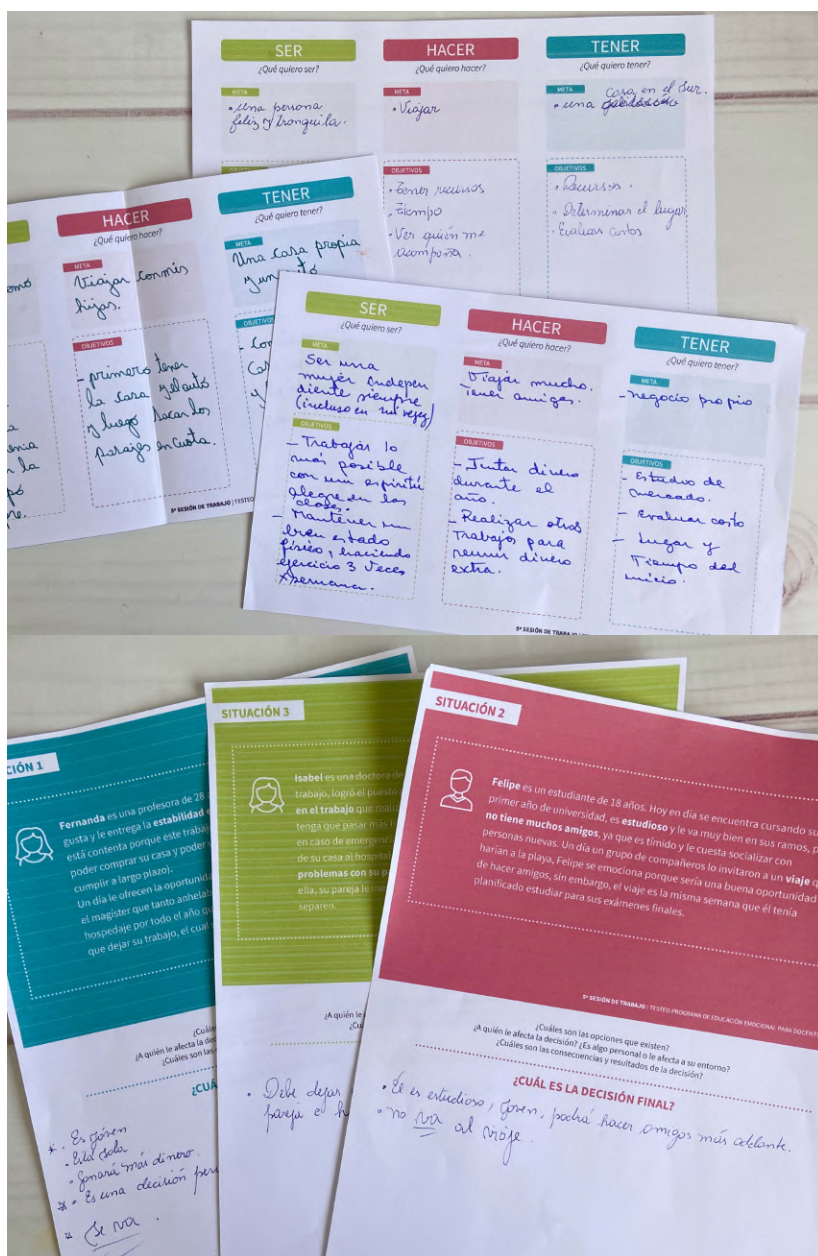 SER
¿Qué quiero ser?
META
• una persona
feliz y tranquila.
OBJETIVOS
HACER
¿Qué quiero hacer?
META
• Viajar
OBJETIVOS
• Tener recursos
• Tiempo
• Ver quién me
acompaña.
TENER
¿Qué quiero tener?
META
casa en el Sur.
• una
OBJETIVOS
• Recursos.
• Determinar el lugar
• Evaluar costos
HACER
¿Qué quiero hacer?
META
Viajar con mis
hijas.
OBJETIVOS
- primero tener
la casa y el auto
y luego sacar los
pasajes en cuota.
TENER
¿Qué quiero tener?
META
Una casa propia
y un
OBJETIVOS
5ª SESIÓN DE TRABAJO | TESTEO
SER
¿Qué quiero ser?
META
Ser una
mujer indepen
diente siempre
(incluso en mi vejez)
OBJETIVOS
- Trabajar lo
más posible
con un espíritu
alegre en las
clases.
- Mantener un
buen estado
físico, haciendo
ejercicio 3 veces
x semana.
HACER
¿Qué quiero hacer?
META
Viajar mucho.
Tener amigos.
OBJETIVOS
- Juntar dinero
durante el
año.
- Realizar otros
Trabajos para
reunir dinero
extra.
TENER
¿Qué quiero tener?
META
- negocio propio
OBJETIVOS
- Estudio de
mercado.
- Evaluar costo
- Lugar y
Tiempo del
inicio.
5ª SESIÓN DE TRABAJO
CIÓN 1
Fernanda es una profesora de 28
gusta y le entrega la estabilidad
está contenta porque este trabaj
poder comprar su casa y poder
cumplir a largo plazo).
Un día le ofrecen la oportunida
el magister que tanto anhelab
hospedaje por todo el año qu
que dejar su trabajo, el cual
¿Cuále
¿A quién le afecta la dec
¿Cuáles son las
¿CUÁ
* • Es joven
• Está sola
• Ganará más dinero.
* • Es una decisión pers
* Se va.
SITUACIÓN 3
Isabel es una doctora de
trabajo, logró el puesto
en el trabajo que realiz
tenga que pasar más ti
en caso de emergenci
de su casa al hospital
problemas con su pa
ella, su pareja le me
separen.
¿A quién le
¿Cu
• Debe dejar
pareja e h
SITUACIÓN 2
Felipe es un estudiante de 18 años. Hoy en día se encuentra cursando su
primer año de universidad, es estudioso y le va muy bien en sus ramos, p
no tiene muchos amigos, ya que es tímido y le cuesta socializar con
personas nuevas. Un día un grupo de compañeros lo invitaron a un viaje q
harían a la playa, Felipe se emociona porque sería una buena oportunidad
de hacer amigos, sin embargo, el viaje es la misma semana que él tenía
planificado estudiar para sus exámenes finales.
5ª SESIÓN DE TRABAJO | TESTEO PROGRAMA DE EDUCACIÓN EMOCIONAL PARA DOCENTE
¿Cuáles son las opciones que existen?
¿A quién le afecta la decisión? ¿Es algo personal o le afecta a su entorno?
¿Cuáles son las consecuencias y resultados de la decisión?
¿CUÁL ES LA DECISIÓN FINAL?
• Él es estudioso, joven, podrá hacer amigos más adelante.
• no va al viaje.